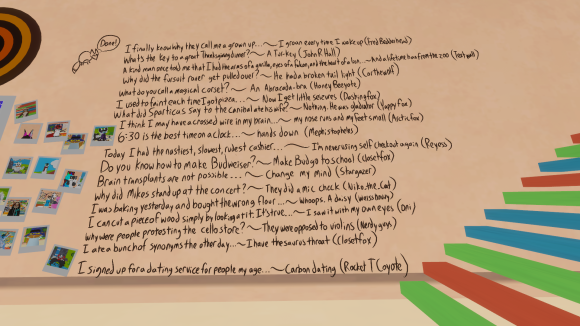 Done!
I finally know why they call me a grown up...~ I groan every time I wake up (Fred Badderhead)
What's the key to a great Thanksgiving dinner?~ A Tur-key (John R Hall)
A kind man once told me that I had the arms of a gorilla, eyes of a falcon, and the heart of a lion...~ And a lifetime ban from the zoo (Testy wolf)
Why did the fursuit racer get pulled over?~ He had a broken tail light (Carthewolf)
What do you call a magical corset?~ An Abracada-bra (Honey Beeyote)
I used to faint each time I got pizza...~ Now I get little seizures (Dashing fox)
What did Sparticus say to the cannibal ate his wife?~ Nothing. He was gladiator (Yappy Fox)
I think I may have a crossed wire in my brain...~ my nose runs and my feet smell (Arctic Fox)
6:30 is the best time on a clock...~ hands down (Mephistopheles)
Today I had the nastiest, slowest, rudest cashier...~ I'm never using self checkout again (Peyess)
Do you know how to make Budweiser?~ Make Bud go to school (closetfox)
Brain transplants are not possible...~ Change my mind (Stargazer)
Why did Mikes stand up at the concert?~ They did a mic check (Niiko_the_Cat)
I was baking yesterday and bought the wrong flour...~ Whoops. A daisy (weissbunny)
I can cut a piece of wood simply by looking at it. It's true...~ I saw it with my own eyes (Oni)
Why were people protesting the cello store?~ They were opposed to violins (Nerdy guys)
I ate a bunch of synonyms the other day...~ I have thesaurus throat (closetfox)
I signed up for a dating service for people my age...~ Carbon dating (Racket T Coyote)